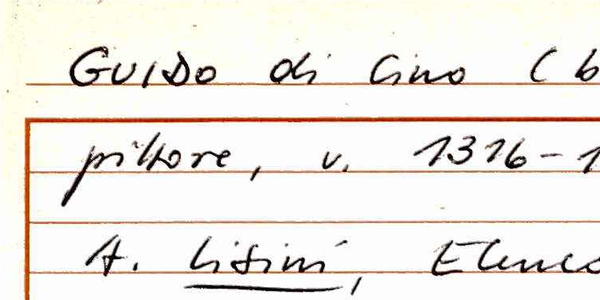 GUIDO di Cino (b
pittore, v. 1316-1
A. Lisini, Elenco